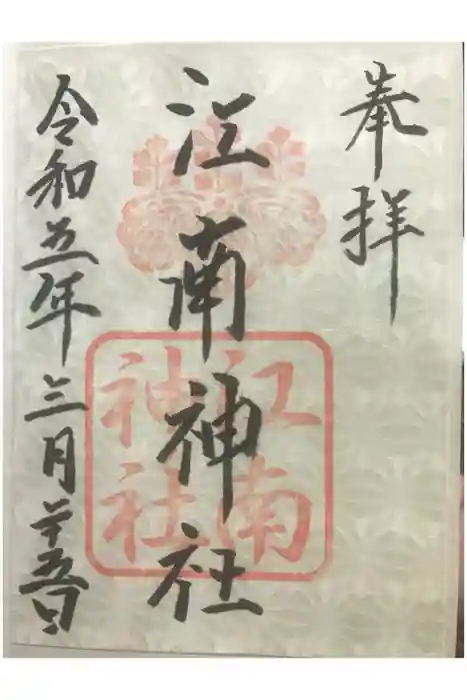 奉拝
江南神社
江南
神社
令和五年三月二十五日